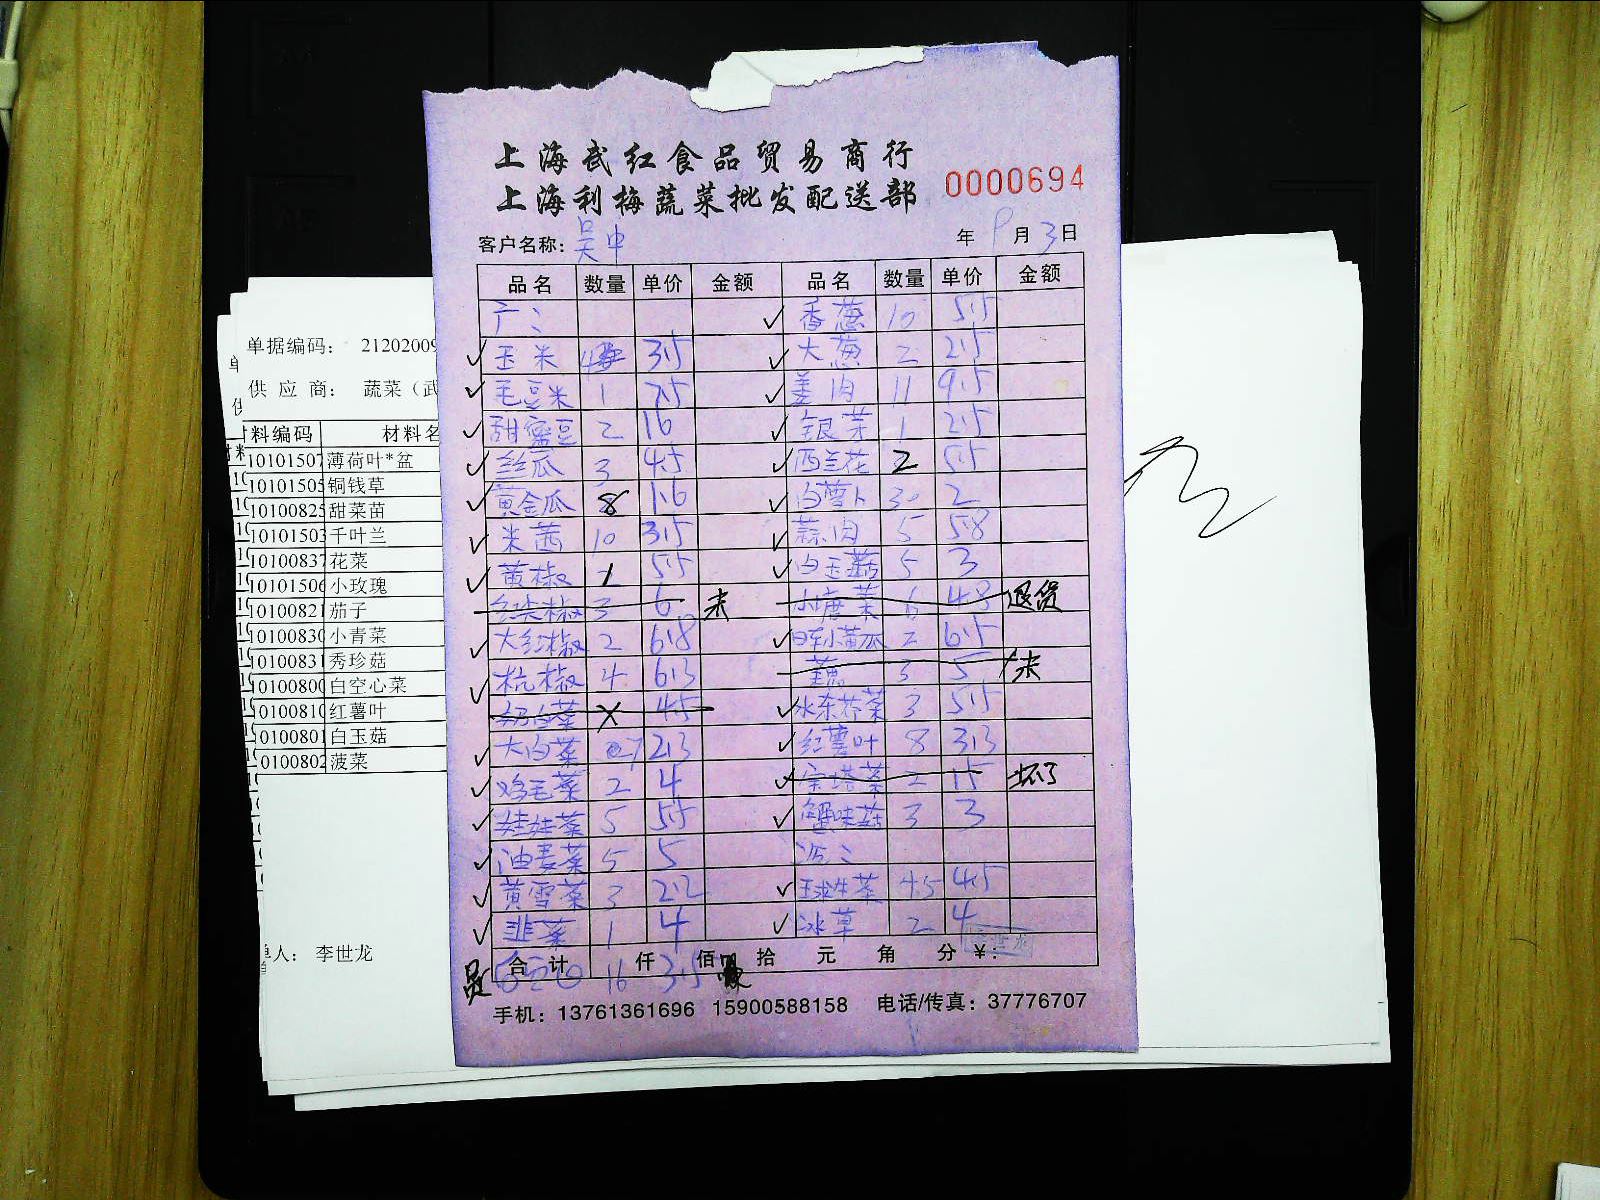 上海武红食品贸易商行
上海利梅蔬菜批发配送部
0000694
客户名称：吴中 年 9月3日
品名 数量 单价 金额 品名 数量 单价 金额
香葱 10 5.5
玉米 3.5 大葱 2 2.5
毛豆米 1 7.5 姜肉 11 9.5
甜蜜豆 2 16 银芽 1 2.5
丝瓜 3 4.5 西兰花 2 5.5
黄金瓜 8 1.6 白萝卜 30 2
米茜 10 3.5 蒜肉 5 5.8
黄椒 1 5.5 白玉菇 5 3
红尖椒 3 6 未 小唐菜 6 4.3 退货
大红椒 2 6.8 日本小黄瓜 2 6.5
杭椒 4 6.3 3 5 未
奶白菜 4.5 水东芥菜 3 5.5
大白菜 2.3 红薯叶 8 3.3
鸡毛菜 2 4 宝塔菜 2 15 坏了
娃娃菜 5 5.5 蟹味菇 3 3
油麦菜 5 5
黄雪菜 3 2.2 球生菜 4.5 4.5
韭菜 1 4 冰草 2 4
合计 仟 佰 拾 元 角 分 ¥：
16 3.5
手机：13761361696 15900588158 电话/传真：37776707
单据编码： 21202009
供 应 商： 蔬菜（武
料编码 材料名
10101507 薄荷叶*盆
10101505 铜钱草
10100825 甜菜苗
10101503 千叶兰
10100837 花菜
10101506 小玫瑰
10100821 茄子
10100830 小青菜
10100831 秀珍菇
10100800 白空心菜
10100810 红薯叶
0100801 白玉菇
0100802 菠菜
单人： 李世龙